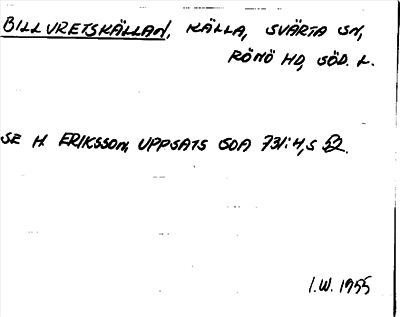 BILLVRETSKÄLLAN, KÄLLA, SVÄRTA SN,
RÖNÖ HD, SÖD. L.
SE H. ERIKSSON, UPPSATS GDA 731:4, S 52.
I.W. 1955